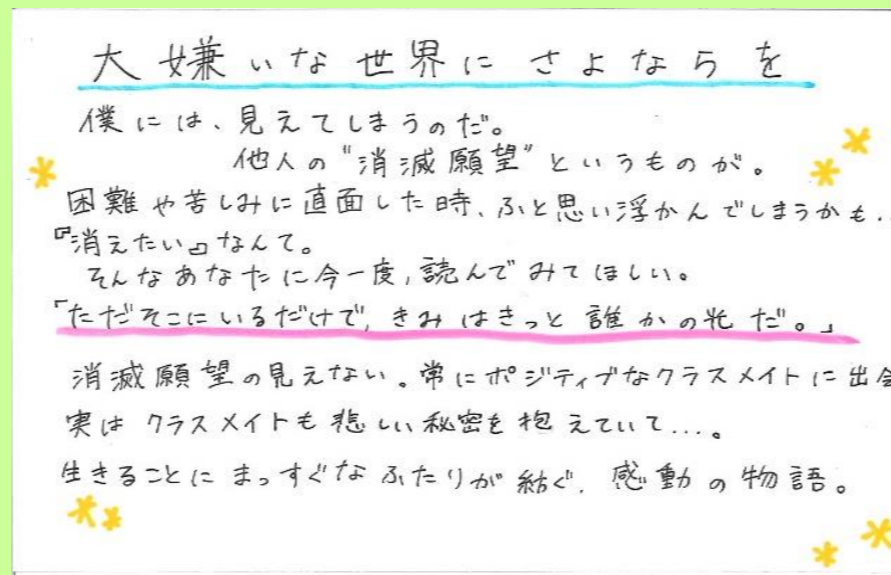 大嫌いな世界にさよならを
僕には、見えてしまうのだ。
他人の“消滅願望”というものが。
困難や苦しみに直面した時、ふと思い浮かんでしまうかも..
『消えたい』なんて。
そんなあなたに今一度,読んでみてほしい。
「ただそこにいるだけで,きみはきっと誰かの光だ。」
消滅願望の見えない。常にポジティブなクラスメイトに出会
実はクラスメイトも悲しい秘密を抱えていて...。
生きることにまっすぐなふたりが紡ぐ、感動の物語。